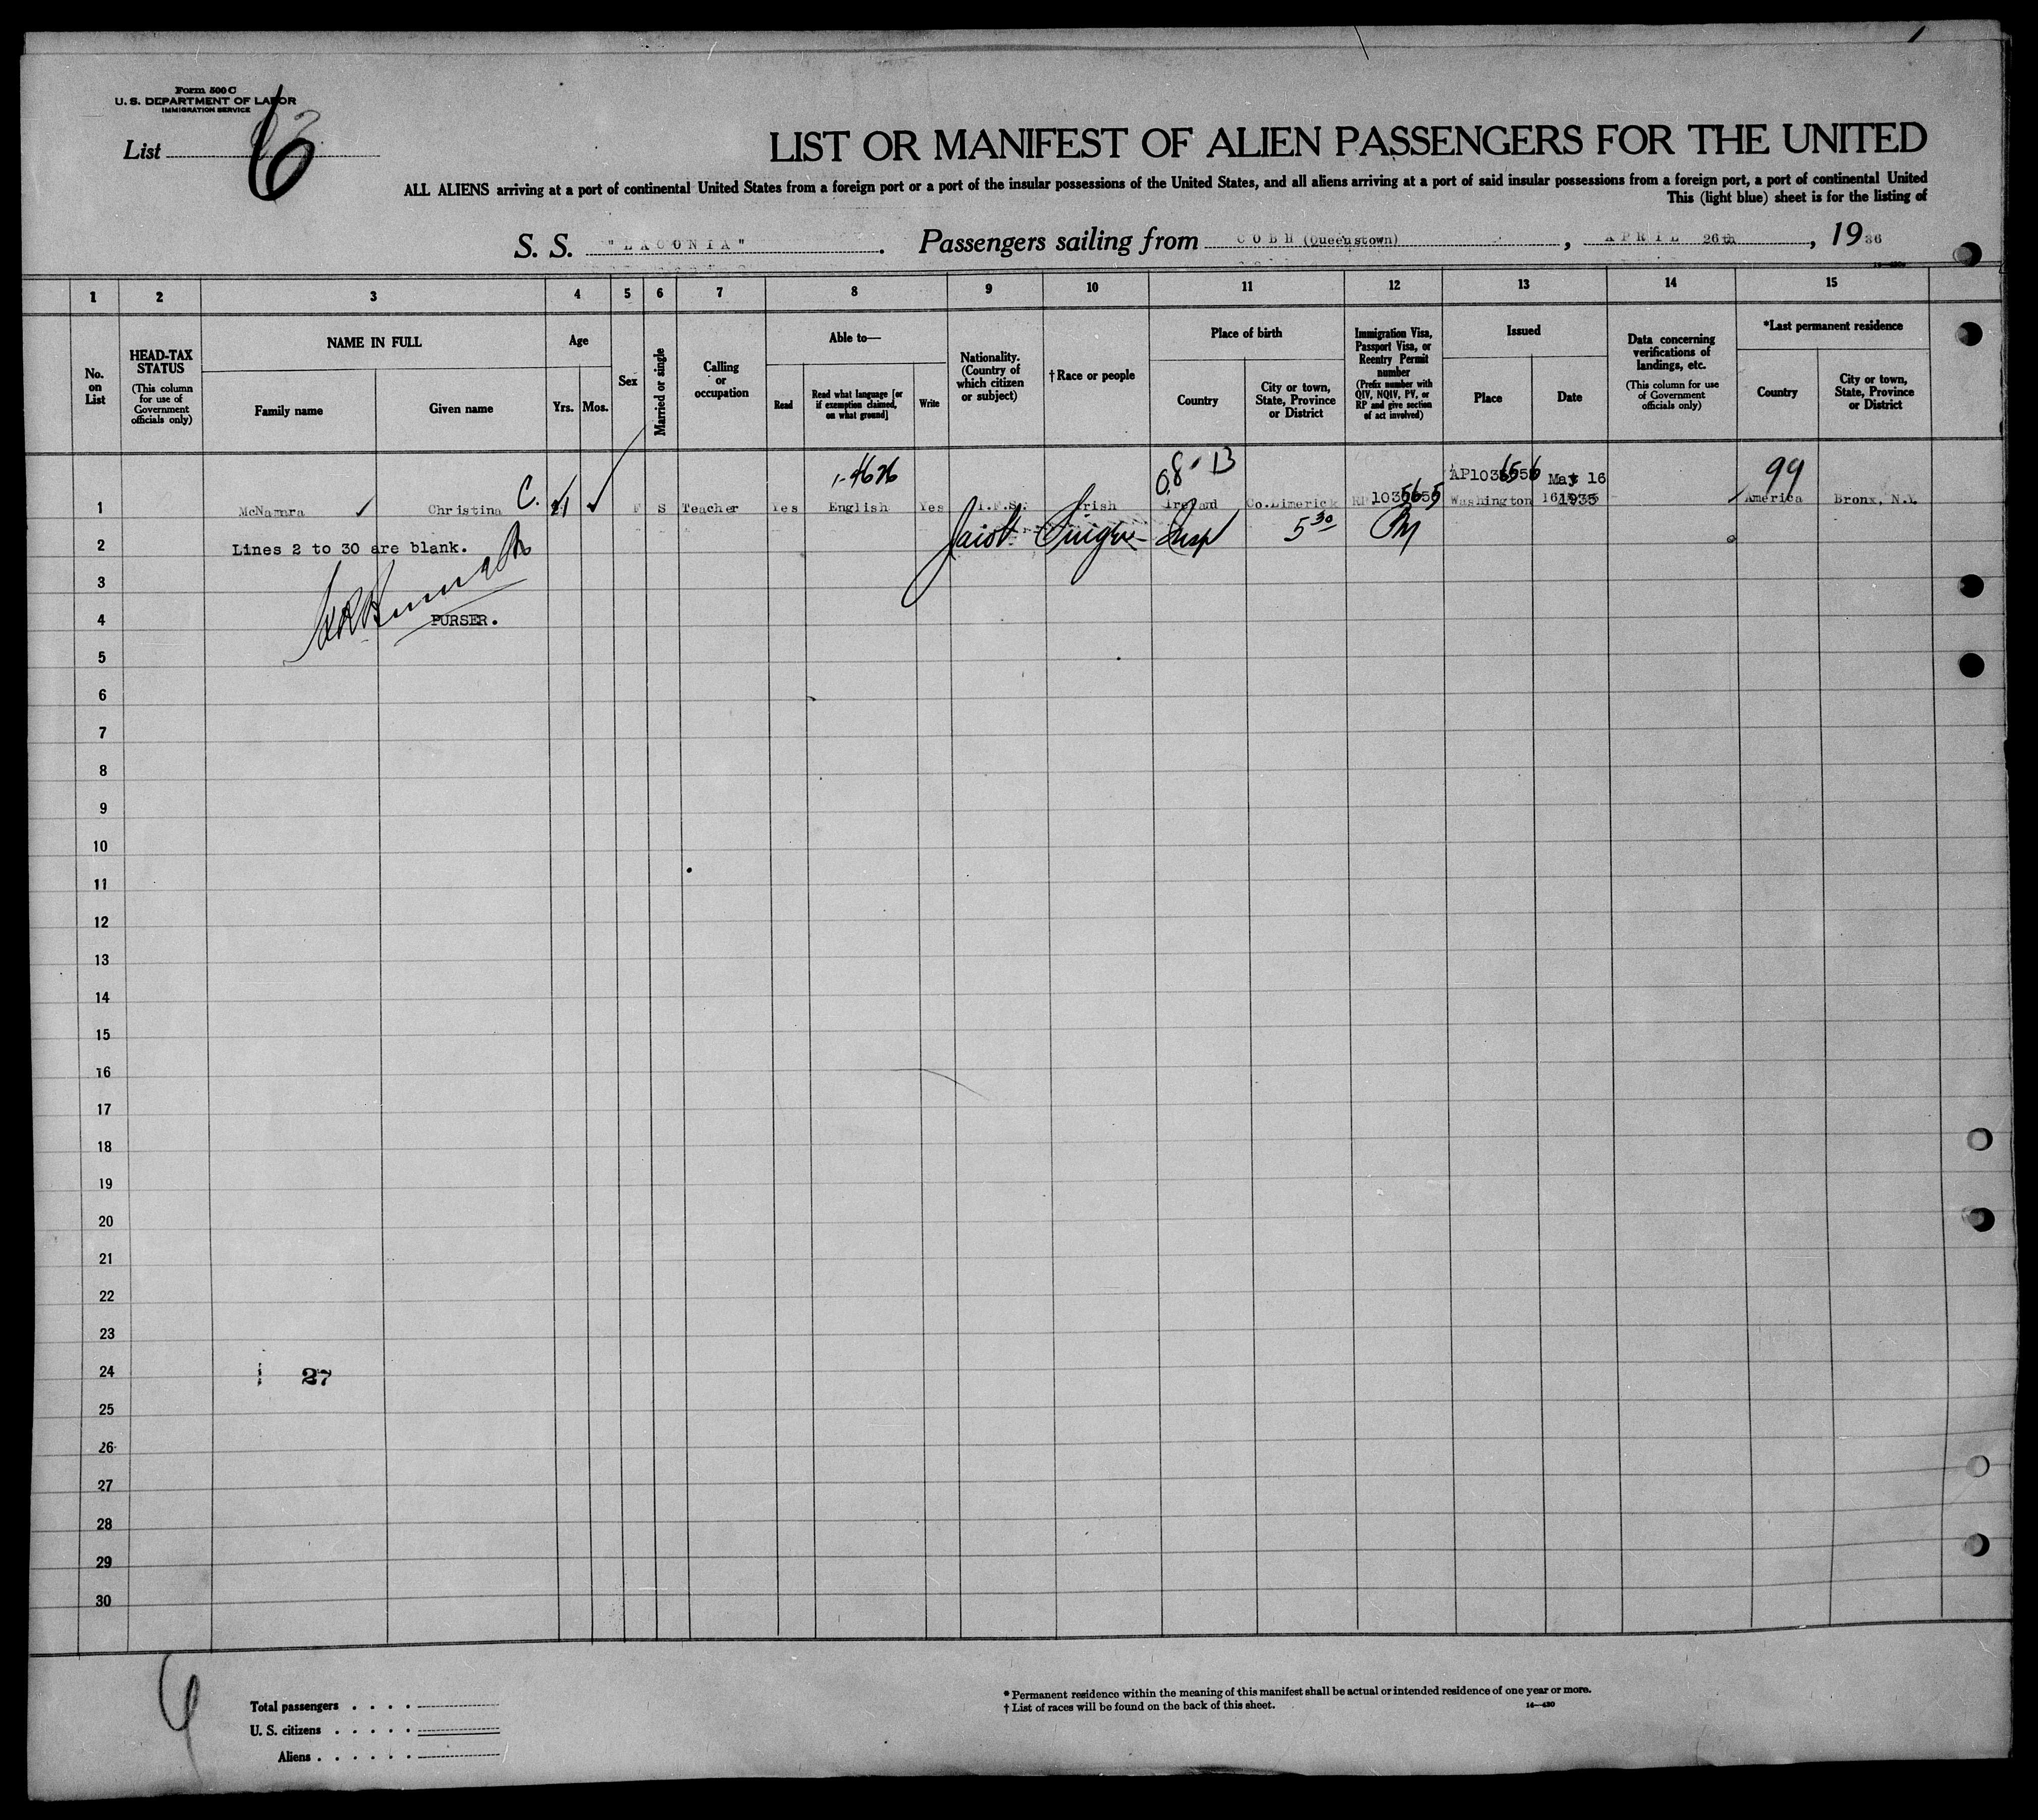 Form 500 C
U. S. DEPARTMENT OF LABOR
IMMIGRATION SERVICE
List 6
LIST OR MANIFEST OF ALIEN PASSENGERS FOR THE UNITED
ALL ALIENS arriving at a port of continental United States from a foreign port or a port of the insular possessions of the United States, and all aliens arriving at a port of said insular possessions from a foreign port, a port of continental United
This (light blue) sheet is for the listing of
S. S. "LACONIA". Passengers sailing from COBH (Queenstown), APRIL 26th, 1936
1 2 3 4 5 6 7 8 9 10 11 12 13 14 15
No. on List
HEAD-TAX STATUS (This column for use of Government officials only)
NAME IN FULL
Family name
Given name
Age
Yrs.
Mos.
Sex
Married or single
Calling or occupation
Able to—
Read
Read what language [or if exemption claimed, on what ground]
Write
Nationality. (Country of which citizen or subject)
†Race or people
Place of birth
Country
City or town, State, Province or District
Immigration Visa, Passport Visa, or Reentry Permit number (Prefix number with QIV, NQIV, PV, or RP and give section of act involved)
Issued
Place
Date
Data concerning verifications of landings, etc. (This column for use of Government officials only)
*Last permanent residence
Country
City or town, State, Province or District
99
May 16
1 McNamara Christina C. 21 F S Teacher Yes English Yes I.F.S. Irish Ireland Co.Limerick Washington 1935 America Bronx, N.Y.
2 Lines 2 to 30 are blank. Jacob Insp 5 30
3
4 PURSER.
5
6
7
8
9
10
11
12
13
14
15
16
17
18
19
20
21
22
23
24 27
25
26
27
28
29
30
Total passengers . . . .
U. S. citizens . . . . .
Aliens . . . . . .
* Permanent residence within the meaning of this manifest shall be actual or intended residence of one year or more.
† List of races will be found on the back of this sheet. 14—430